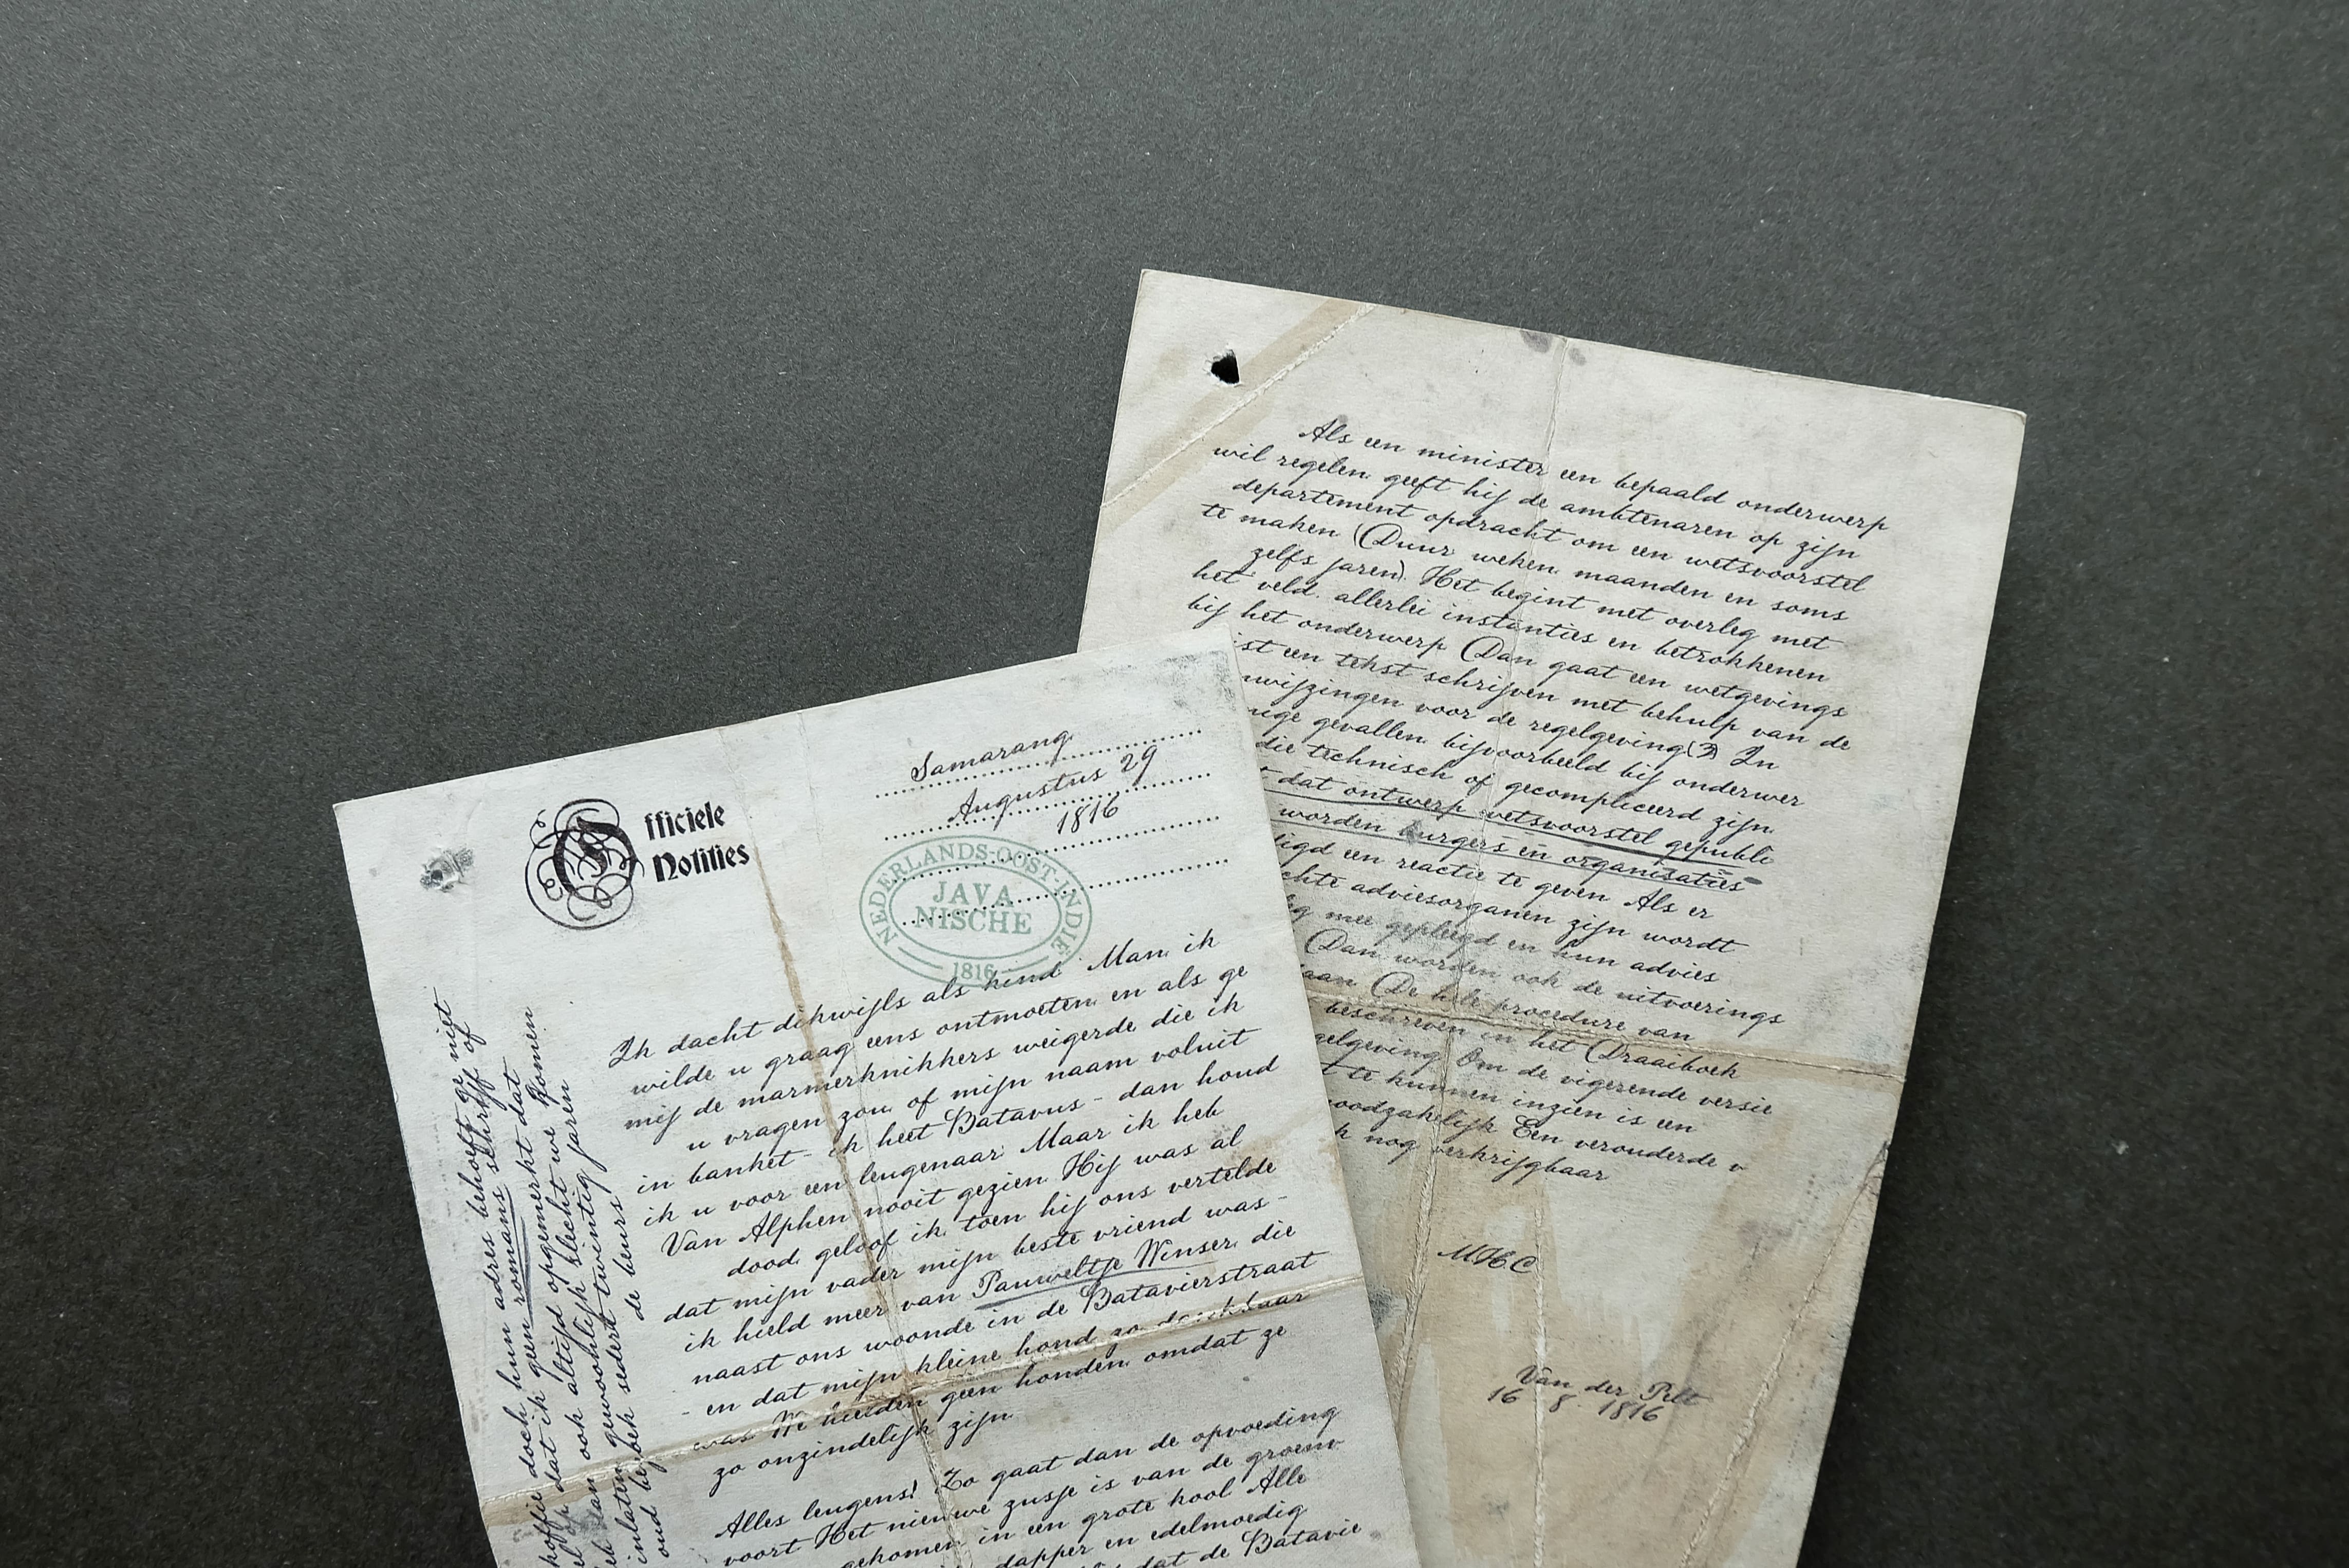 Als een minister een bepaald onderwerp
wil regelen, geeft hij de ambtenaren op zijn
departement opdracht om een wetsvoorstel
te maken (Duur weken, maanden en soms
zelfs jaren). Het begint met overleg met
het veld. allerlei instanties en betrokkenen
bij het onderwerp (Dan gaat een wetgevings
st een tekst schrijven met behulp van de
nwijzingen voor de regelgeving(3) In
nige gevallen, bijvoorbeeld bij onderwer
die technisch of gecompliceerd zijn,
t dat ontwerp wetsvoorstel gepubli
worden burgers en organisaties
digd een reactie te geven Als er
chte adviesorganen zijn wordt
eg mee gepleegd en hun advies
(Dan worden ook de uitvoerings
aan (De hele procedure van
beschreven in het (Draaiboek
gelgeving Om de vigerende versie
t te kunnen inzien is een
noodzakelijk Een verouderde v
k nog verkrijgbaar
MHC
Van der Pelt
16 8. 1816
Officiele
Notities
Samarang
Augustus 29
1816
NEDERLANDS-OOST-INDIE
JAVA
NISCHE
1816
Ik dacht dikwijls als kind Man, ik
wilde u graag eens ontmoeten, en als ge
mij de marmerknikkers weigerde die ik
u vragen zou, of mijn naam voluit
in banket - ik heet Batavus - dan houd
ik u voor een leugenaar. Maar ik heb
Van Alphen nooit gezien. Hij was al
dood, geloof ik, toen hij ons vertelde
dat mijn vader mijn beste vriend was -
ik hield meer van Pauweltje Winser, die
naast ons woonde in de Batavierstraat
- en dat mijn kleine hond zo dankbaar
was. We hielden geen honden, omdat ze
zo onzindelijk zijn.
Alles leugens! Zo gaat dan de opvoeding
voort Het nieuwe zusje is van de groenv
gekomen in een grote kool Alle
dapper en edelmoedig
dat de Batavie
koffie doch hun adres behoeft ge niet
el op dat ik geen romans schrijf of
opgemerkt dat
ook altijd slecht we komen
inlaten gewoonlijk twintig jaren
oud bezoek sedert
de beurs